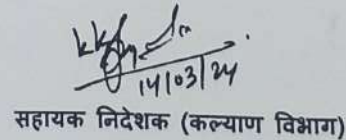 14/03/24
सहायक निदेशक (कल्याण विभाग)